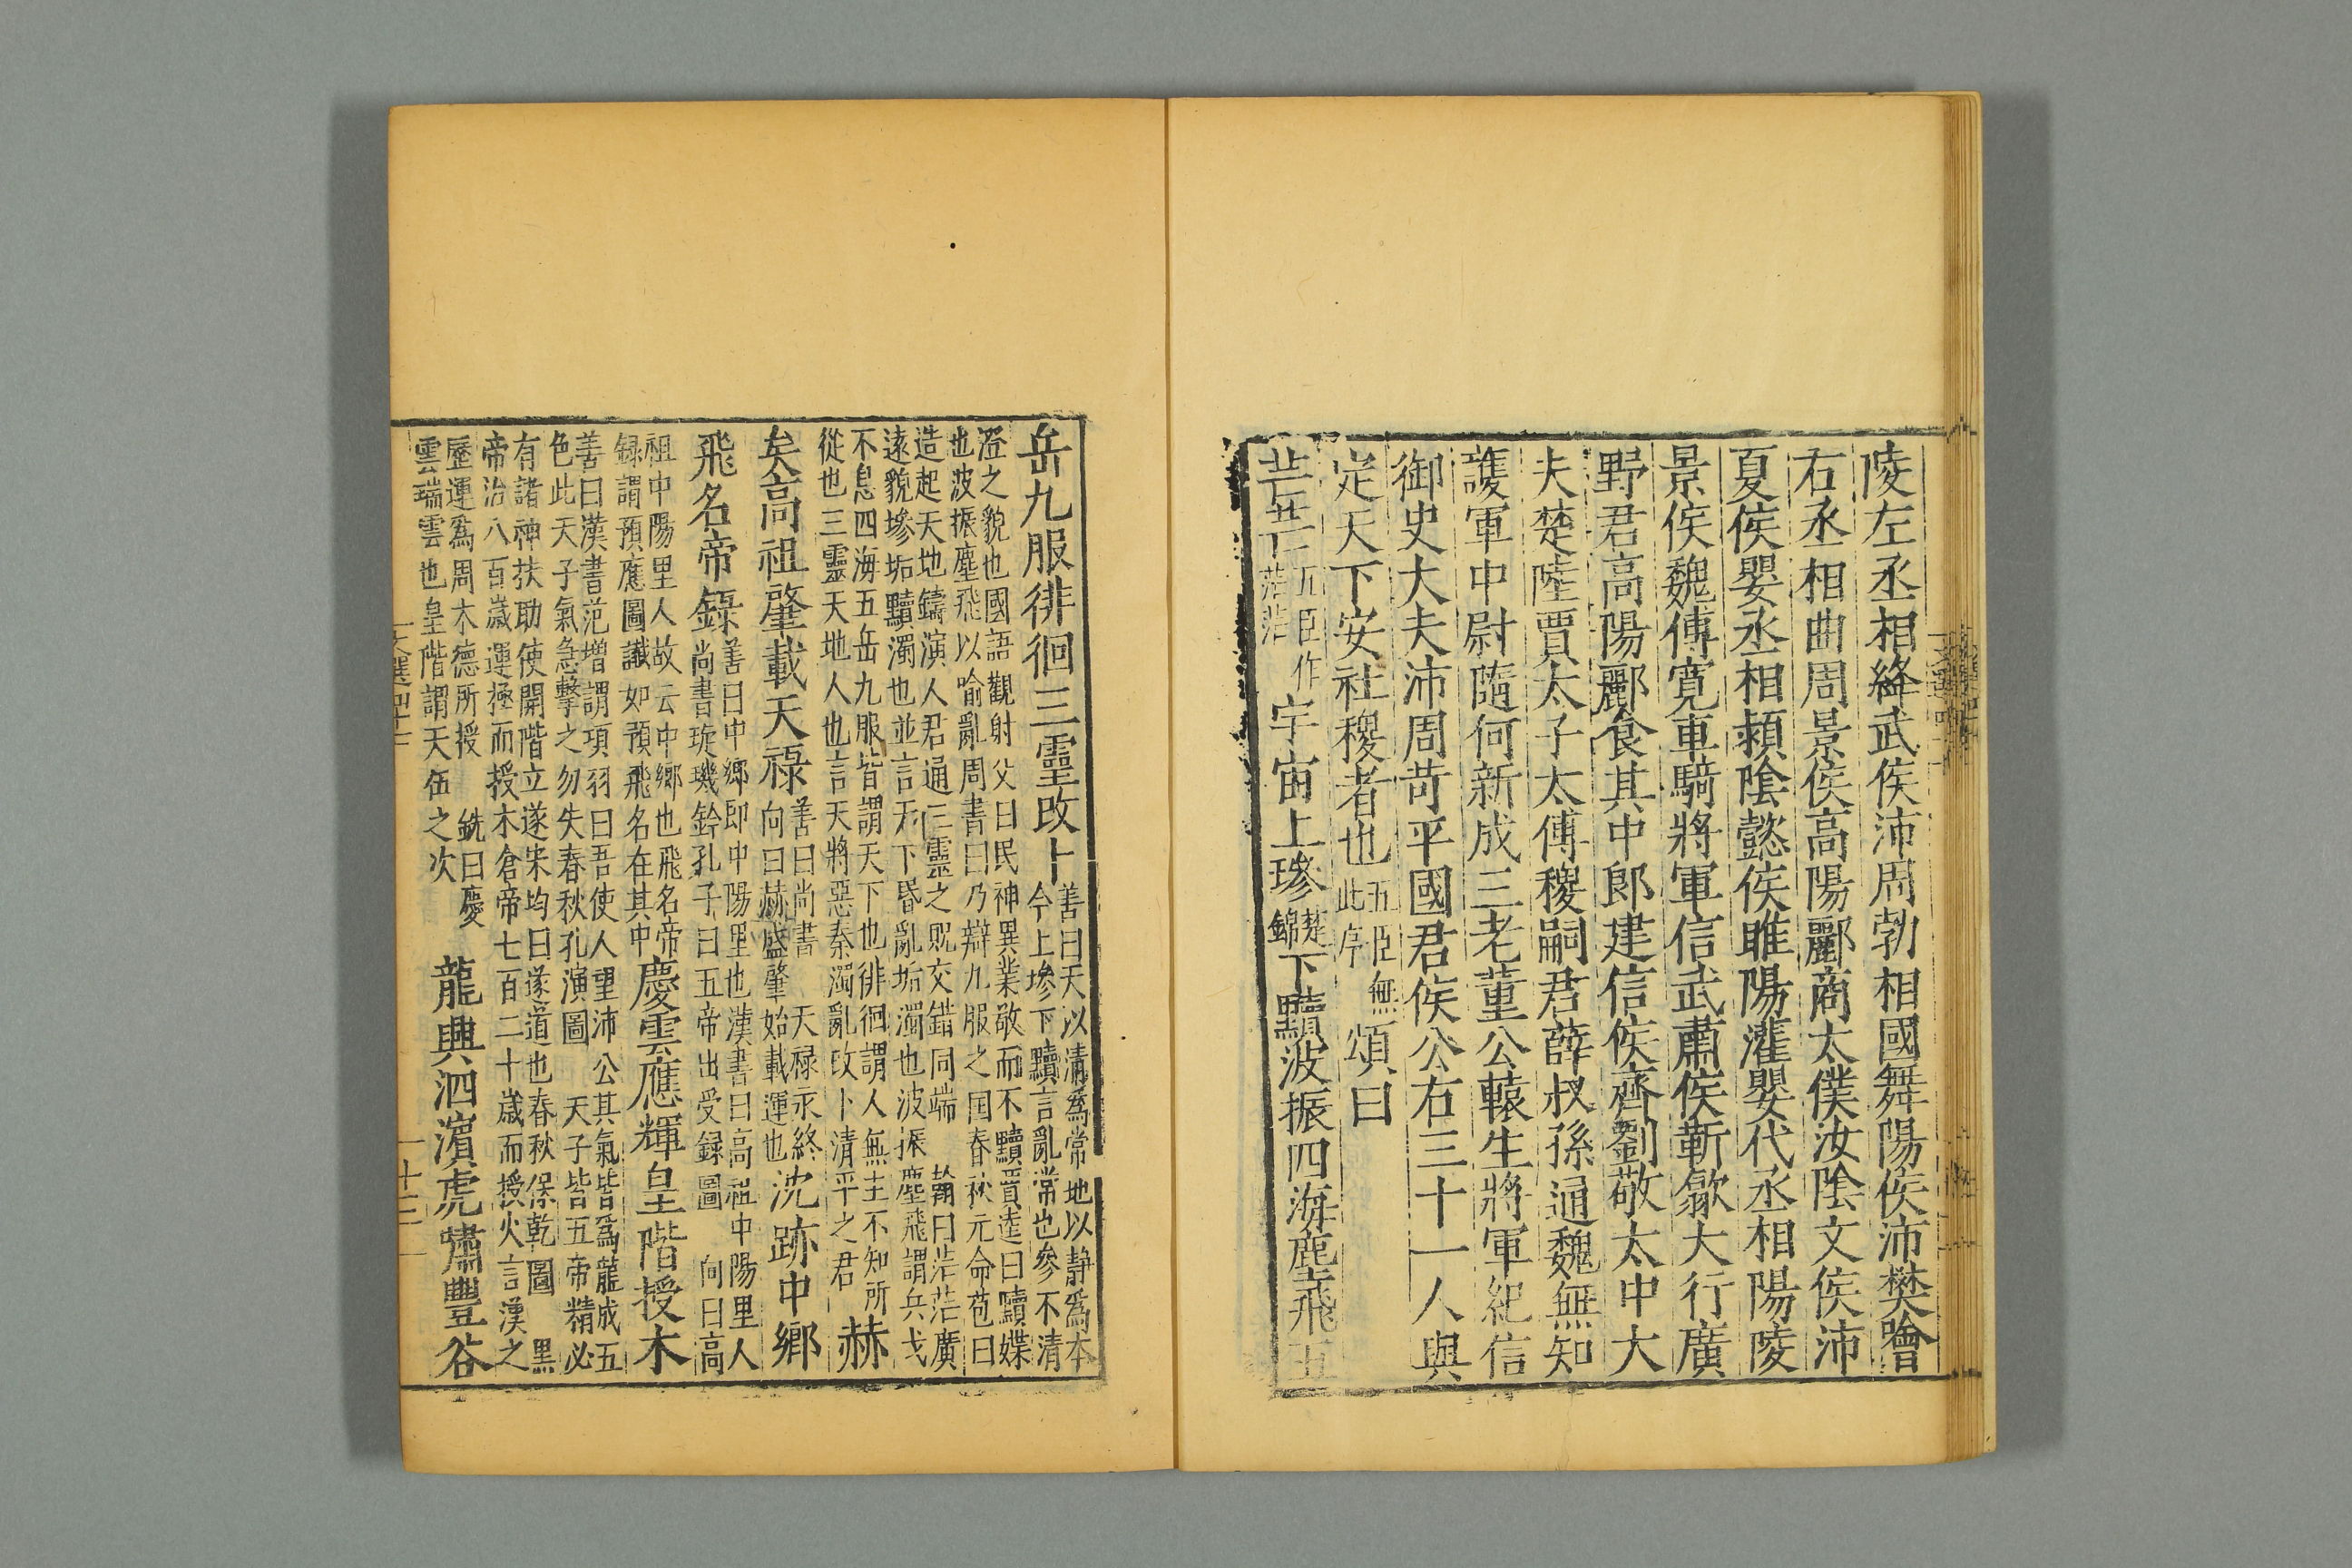 陵左丞相絳武侯沛周勃相國舞陽侯沛樊噲
右丞相曲周景侯高陽酈商太僕汝陰文侯沛
夏侯嬰丞相潁陰懿侯睢陽灌嬰代丞相陽陵
景侯魏傅寬車騎將軍信武肅侯靳歙大行廣
野君高陽酈食其中郎建信侯齊劉敬太中大
夫楚陸賈太子太傅稷嗣君薛叔孫通魏無知
護軍中尉隨何新成三老董公轅生將軍紀信
御史大夫沛周苛平國君侯公右三十一人與
定天下安社稷者也五臣無此序頌曰
芒芒五臣作茫茫宇宙上墋楚錦下黷波振四海塵飛五
岳九服徘徊三靈改卜善曰天以清爲常地以静爲本
今上墋下黷言亂常也參不清
澄之貌也國語觀射父曰民神異業敬而不黷賈逵曰黷媟
也波振塵飛以喻亂周書曰乃辯九服之国春秋元命苞曰
造起天地鑄演人君通三靈之貺交錯同端 翰曰茫茫廣
遠貌墋垢黷濁也並言天下昏亂垢濁也波振塵飛謂兵戈
不息四海五岳九服皆謂天下也徘徊謂人無主不知所
從也三靈天地人也言天將惡秦濁亂改卜清平之君赫
矣高祖肇載天祿善曰尚書 天禄永終
向曰赫盛肇始載運也沈跡中鄉
飛名帝錄善曰中鄉即中陽里也漢書曰高祖中陽里人
尚書琁璣鈐孔子曰五帝出受録圖 向曰高
祖中陽里人故云中鄉也飛名帝
録謂預應圖讖如預飛名在其中慶雲應輝皇階授木
善曰漢書范增謂項羽曰吾使人望沛公其氣皆爲龍成五
色此天子氣急擊之勿失春秋孔演圖 天子皆五帝精必
有諸神扶助使開階立遂宋均曰遂道也春秋保乾圖 黑
帝治八百歲運極而授木倉帝七百二十歲而授火言漢之
歷運爲周木德所授 銑曰慶
雲瑞雲也皇階謂天伍之次龍興泗濱虎嘯豐谷
文選四十
十三